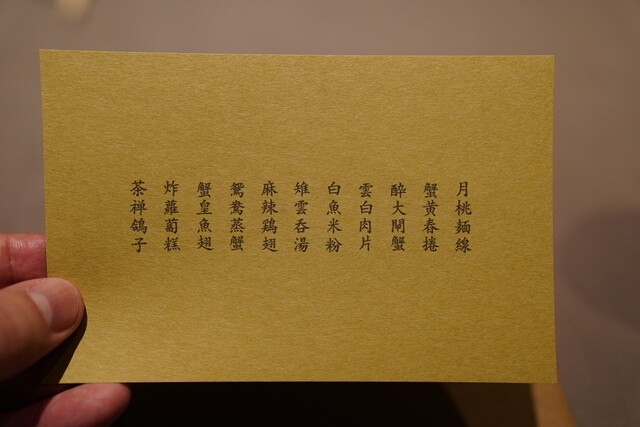 月桃麺線
蟹黄春捲
醉大閘蟹
雲白肉片
白魚米粉
雉雲呑湯
麻辣鶏翅
鴛鴦蒸蟹
蟹皇魚翅
炸蘿蔔糕
茶禅鴿子